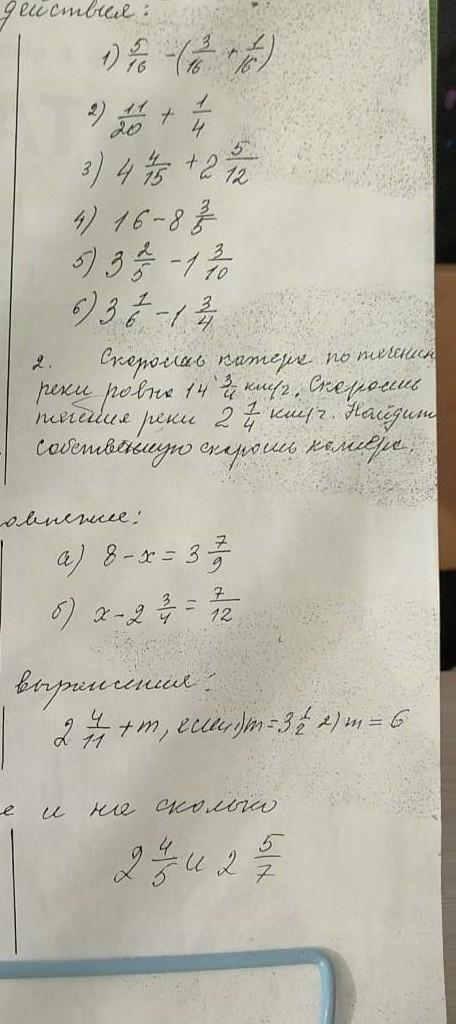 действия:
1) 5/16 - (3/16 + 1/16)
2) 11/20 + 1/4
3) 4 4/15 + 2 5/12
4) 16 - 8 3/5
5) 3 2/5 - 1 3/10
6) 3 1/6 - 1 3/4
2. Скорость катера по течению
реки равна 14 3/4 км/г. Скорость
течения реки 2 1/4 км/г. Найдите
собственную скорость катера.
овнение:
а) 8 - x = 3 7/9
б) x - 2 3/4 = 7/12
выражения:
2 4/11 + m, если 1) m = 3 1/2 2) m = 6
е и на сколько
2 4/5 и 2 5/7